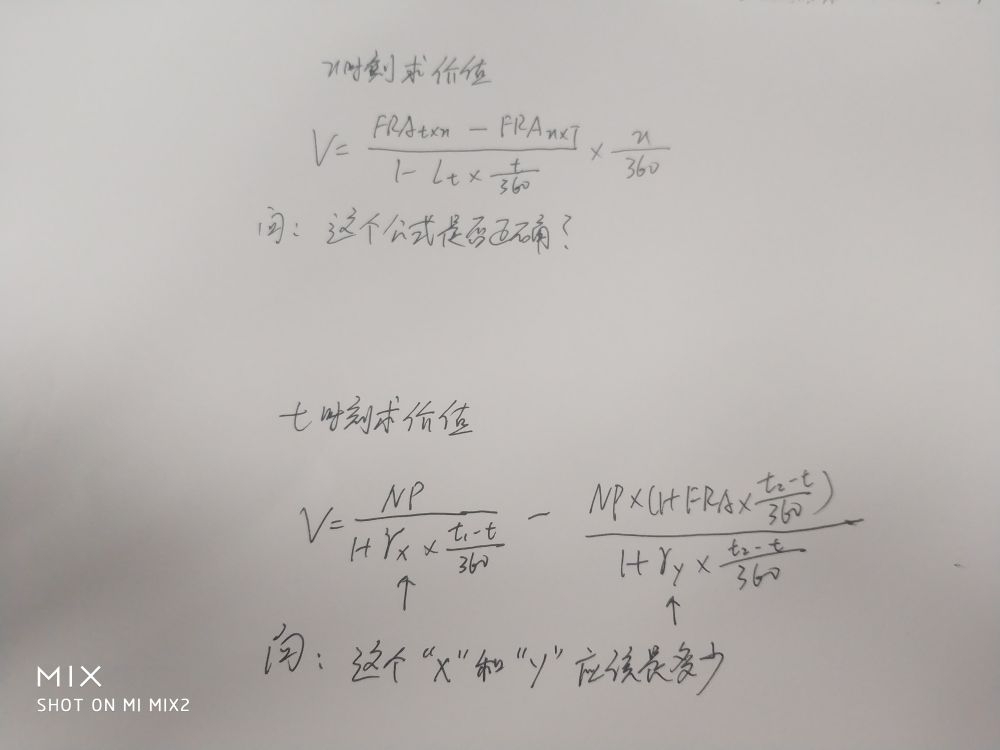 n时刻求价值
V= (FRAt×n − FRAn×T)/(1- Lt × t/360) × n/360
问：这个公式是否正确？
t时刻求价值
V= NP/(1+ rx × (t₁-t)/360) − NP×(1+FRA×(t₂-t)/360)/(1+ ry × (t₂-t)/360)
↑ ↑
问：这个“x”和“y”应该是多少
MIX
SHOT ON MI MIX2